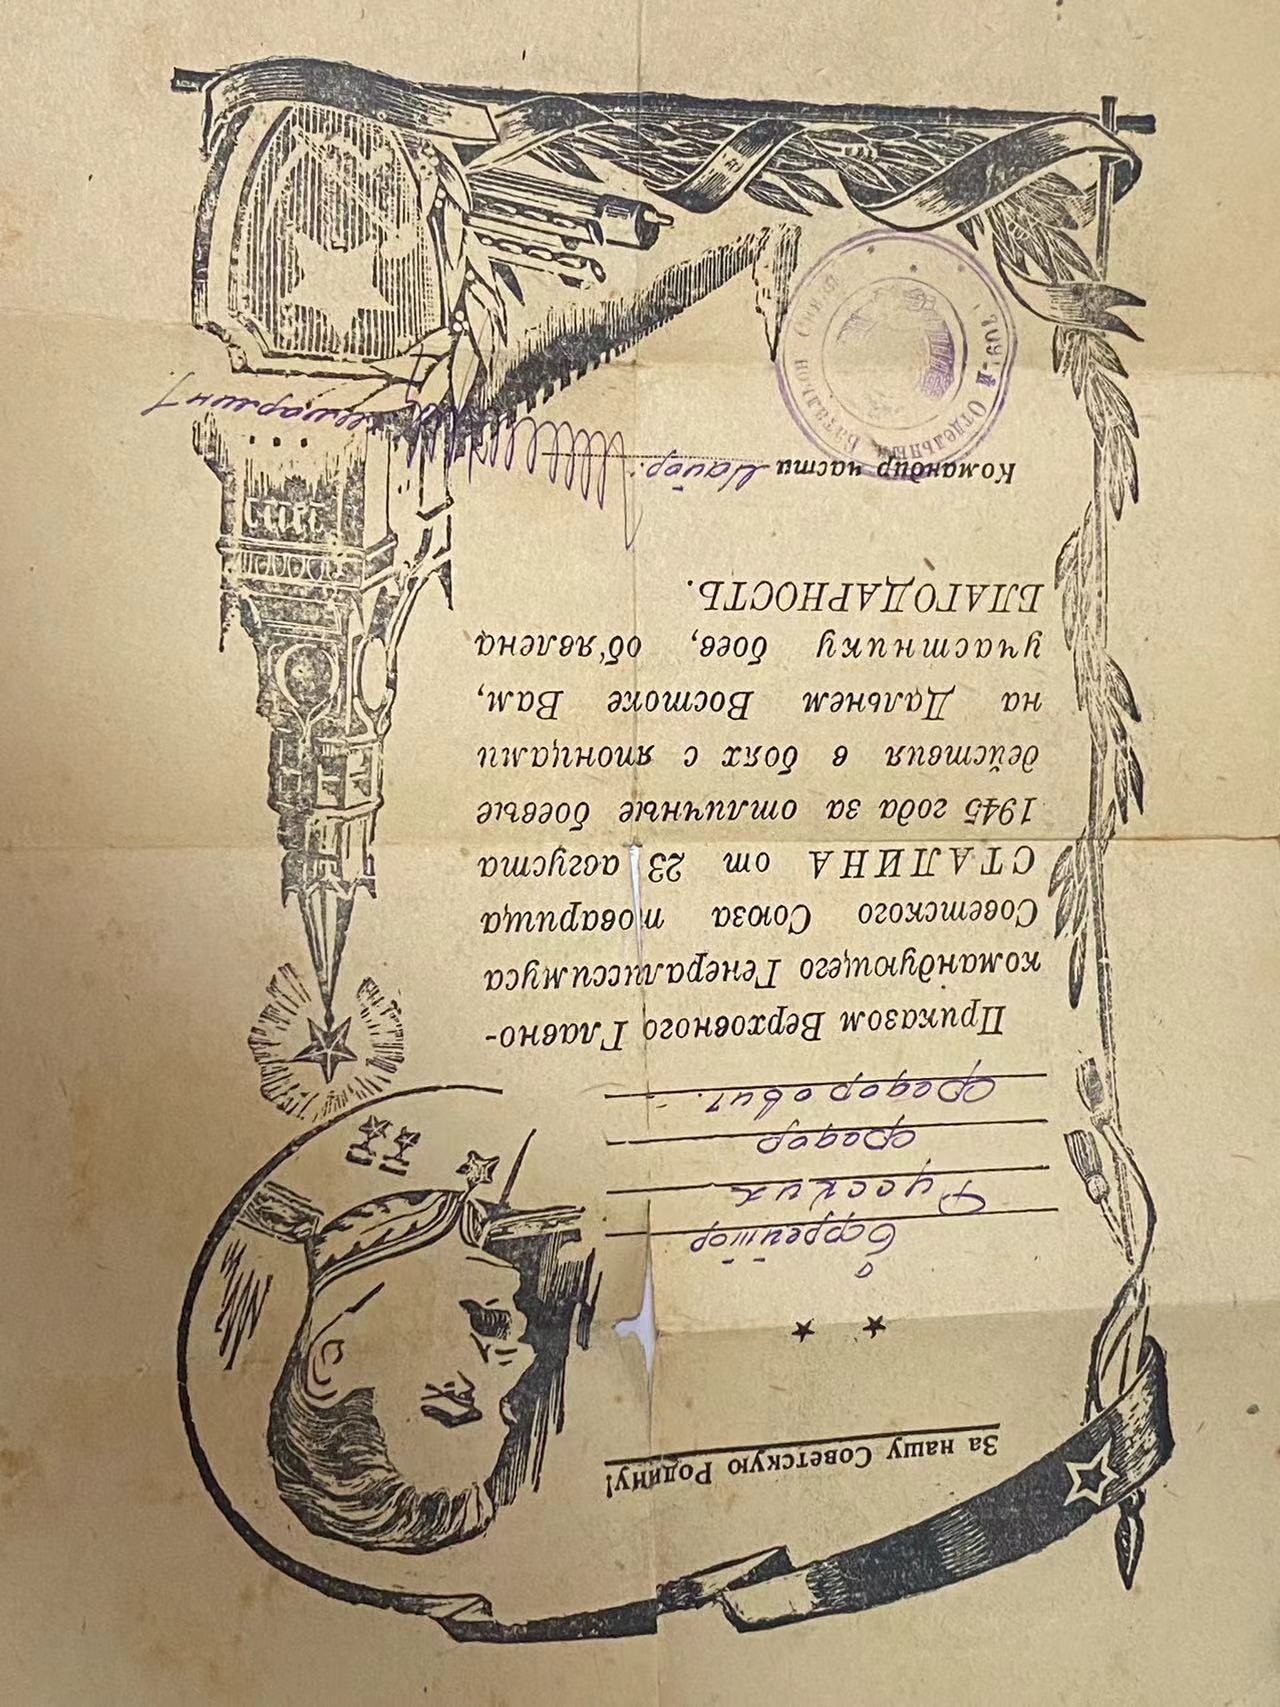 За нашу Советскую Родину!
Ефрейтор
Русских
Федор
Федорович.
Приказом Верховного Главно-
командующего Генералиссимуса
Советского Союза товарища
СТАЛИНА от 23 августа
1945 года за отличные боевые
действия в боях с японцами
на Дальнем Востоке Вам,
участнику боев, об'явлена
БЛАГОДАРНОСТЬ.
Командир части Майор:
Отдельный Батальон Связи
СССР